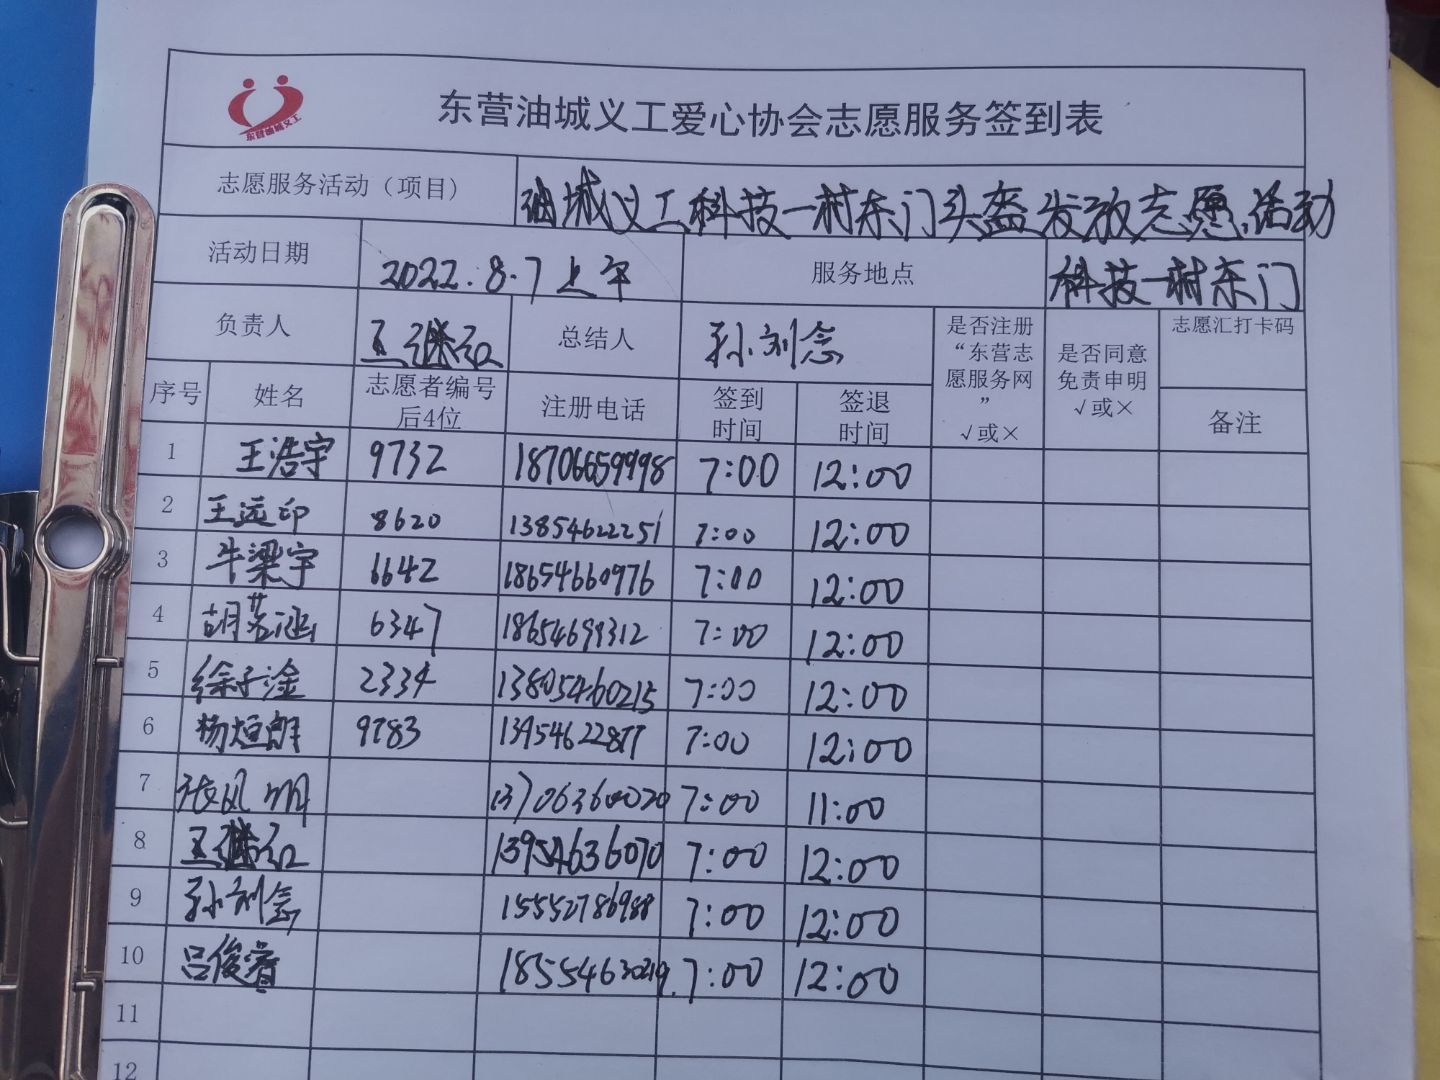 东营油城义工
东营油城义工爱心协会志愿服务签到表
志愿服务活动（项目） 油城义工科技一村东门头盔发放志愿活动
活动日期 2022.8.7上午 服务地点 科技一村东门
负责人 王继红 总结人 孙刘念 是否注册“东营志愿服务网”√或× 是否同意免责申明√或× 志愿汇打卡码
序号 姓名 志愿者编号后4位 注册电话 签到时间 签退时间 备注
1 王浩宇 9732 18706659998 7:00 12:00
2 王远印 8620 13854622251 7:00 12:00
3 牛梁宇 6642 18654660976 7:00 12:00
4 胡茗涵 6347 18654699312 7:00 12:00
5 徐子淦 2334 13805460215 7:00 12:00
6 杨烜朗 9783 13954622877 7:00 12:00
7 张凤明 13706360020 7:00 11:00
8 王继红 13954636070 7:00 12:00
9 孙刘念 15552786988 7:00 12:00
10 吕俊睿 18554630219. 7:00 12:00
11
12